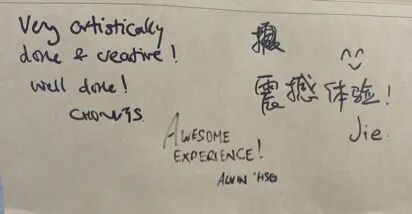 Very artistically
done & creative!
well done!
震撼体验!
Jie.
AWESOME
EXPERIENCE!
ALVIN